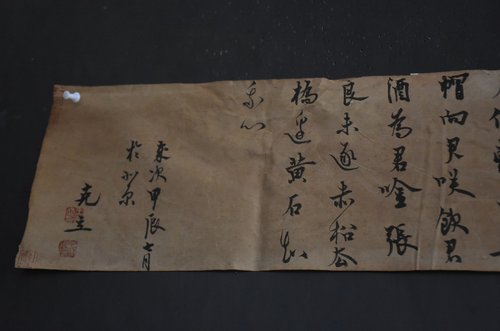 帽向君咲飲君
酒為君唫張
良未逐赤松去
橋邊黃石知
我心
歲次甲辰七月
於北京
克立